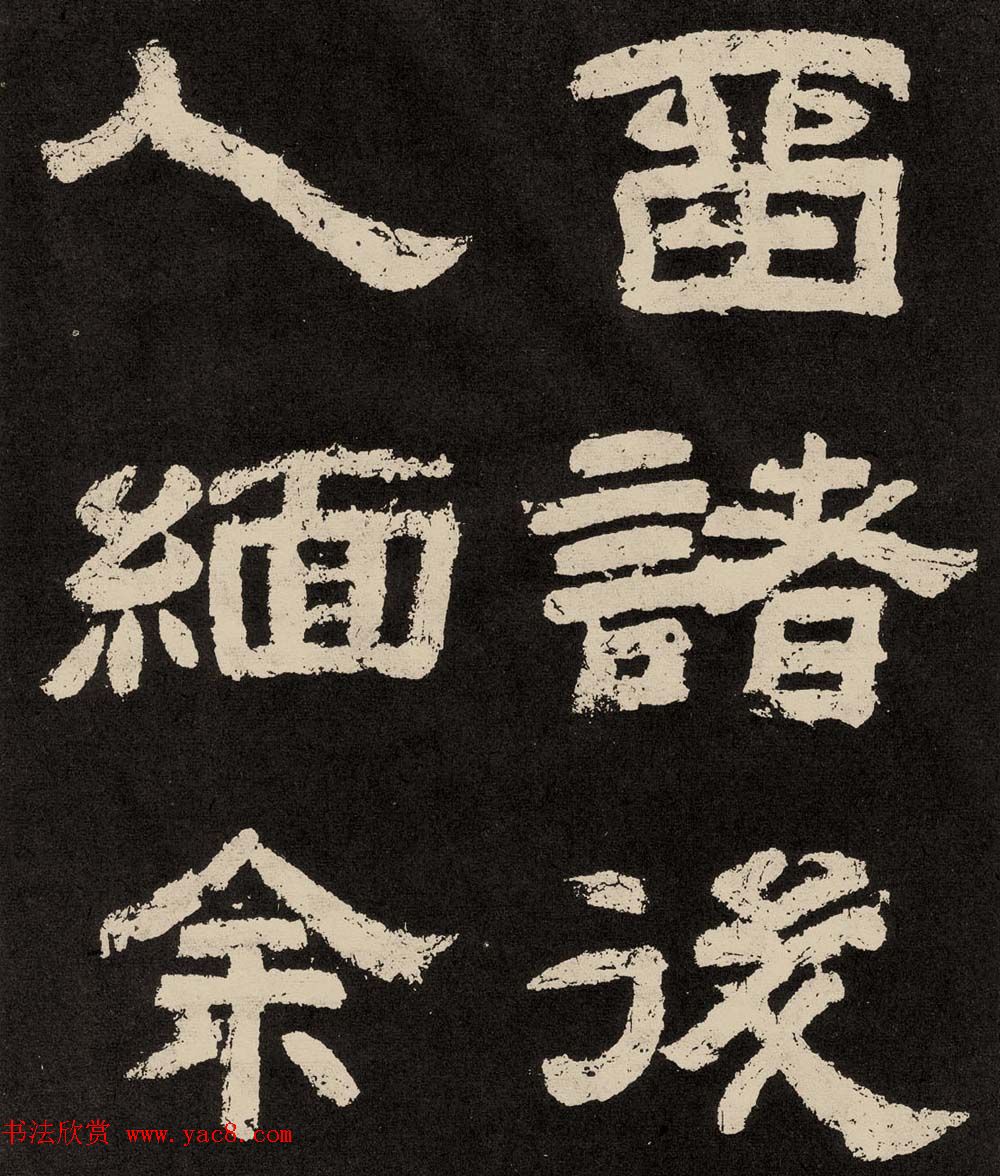 畱諸後
人緬余
书法欣赏 www.yac8.com